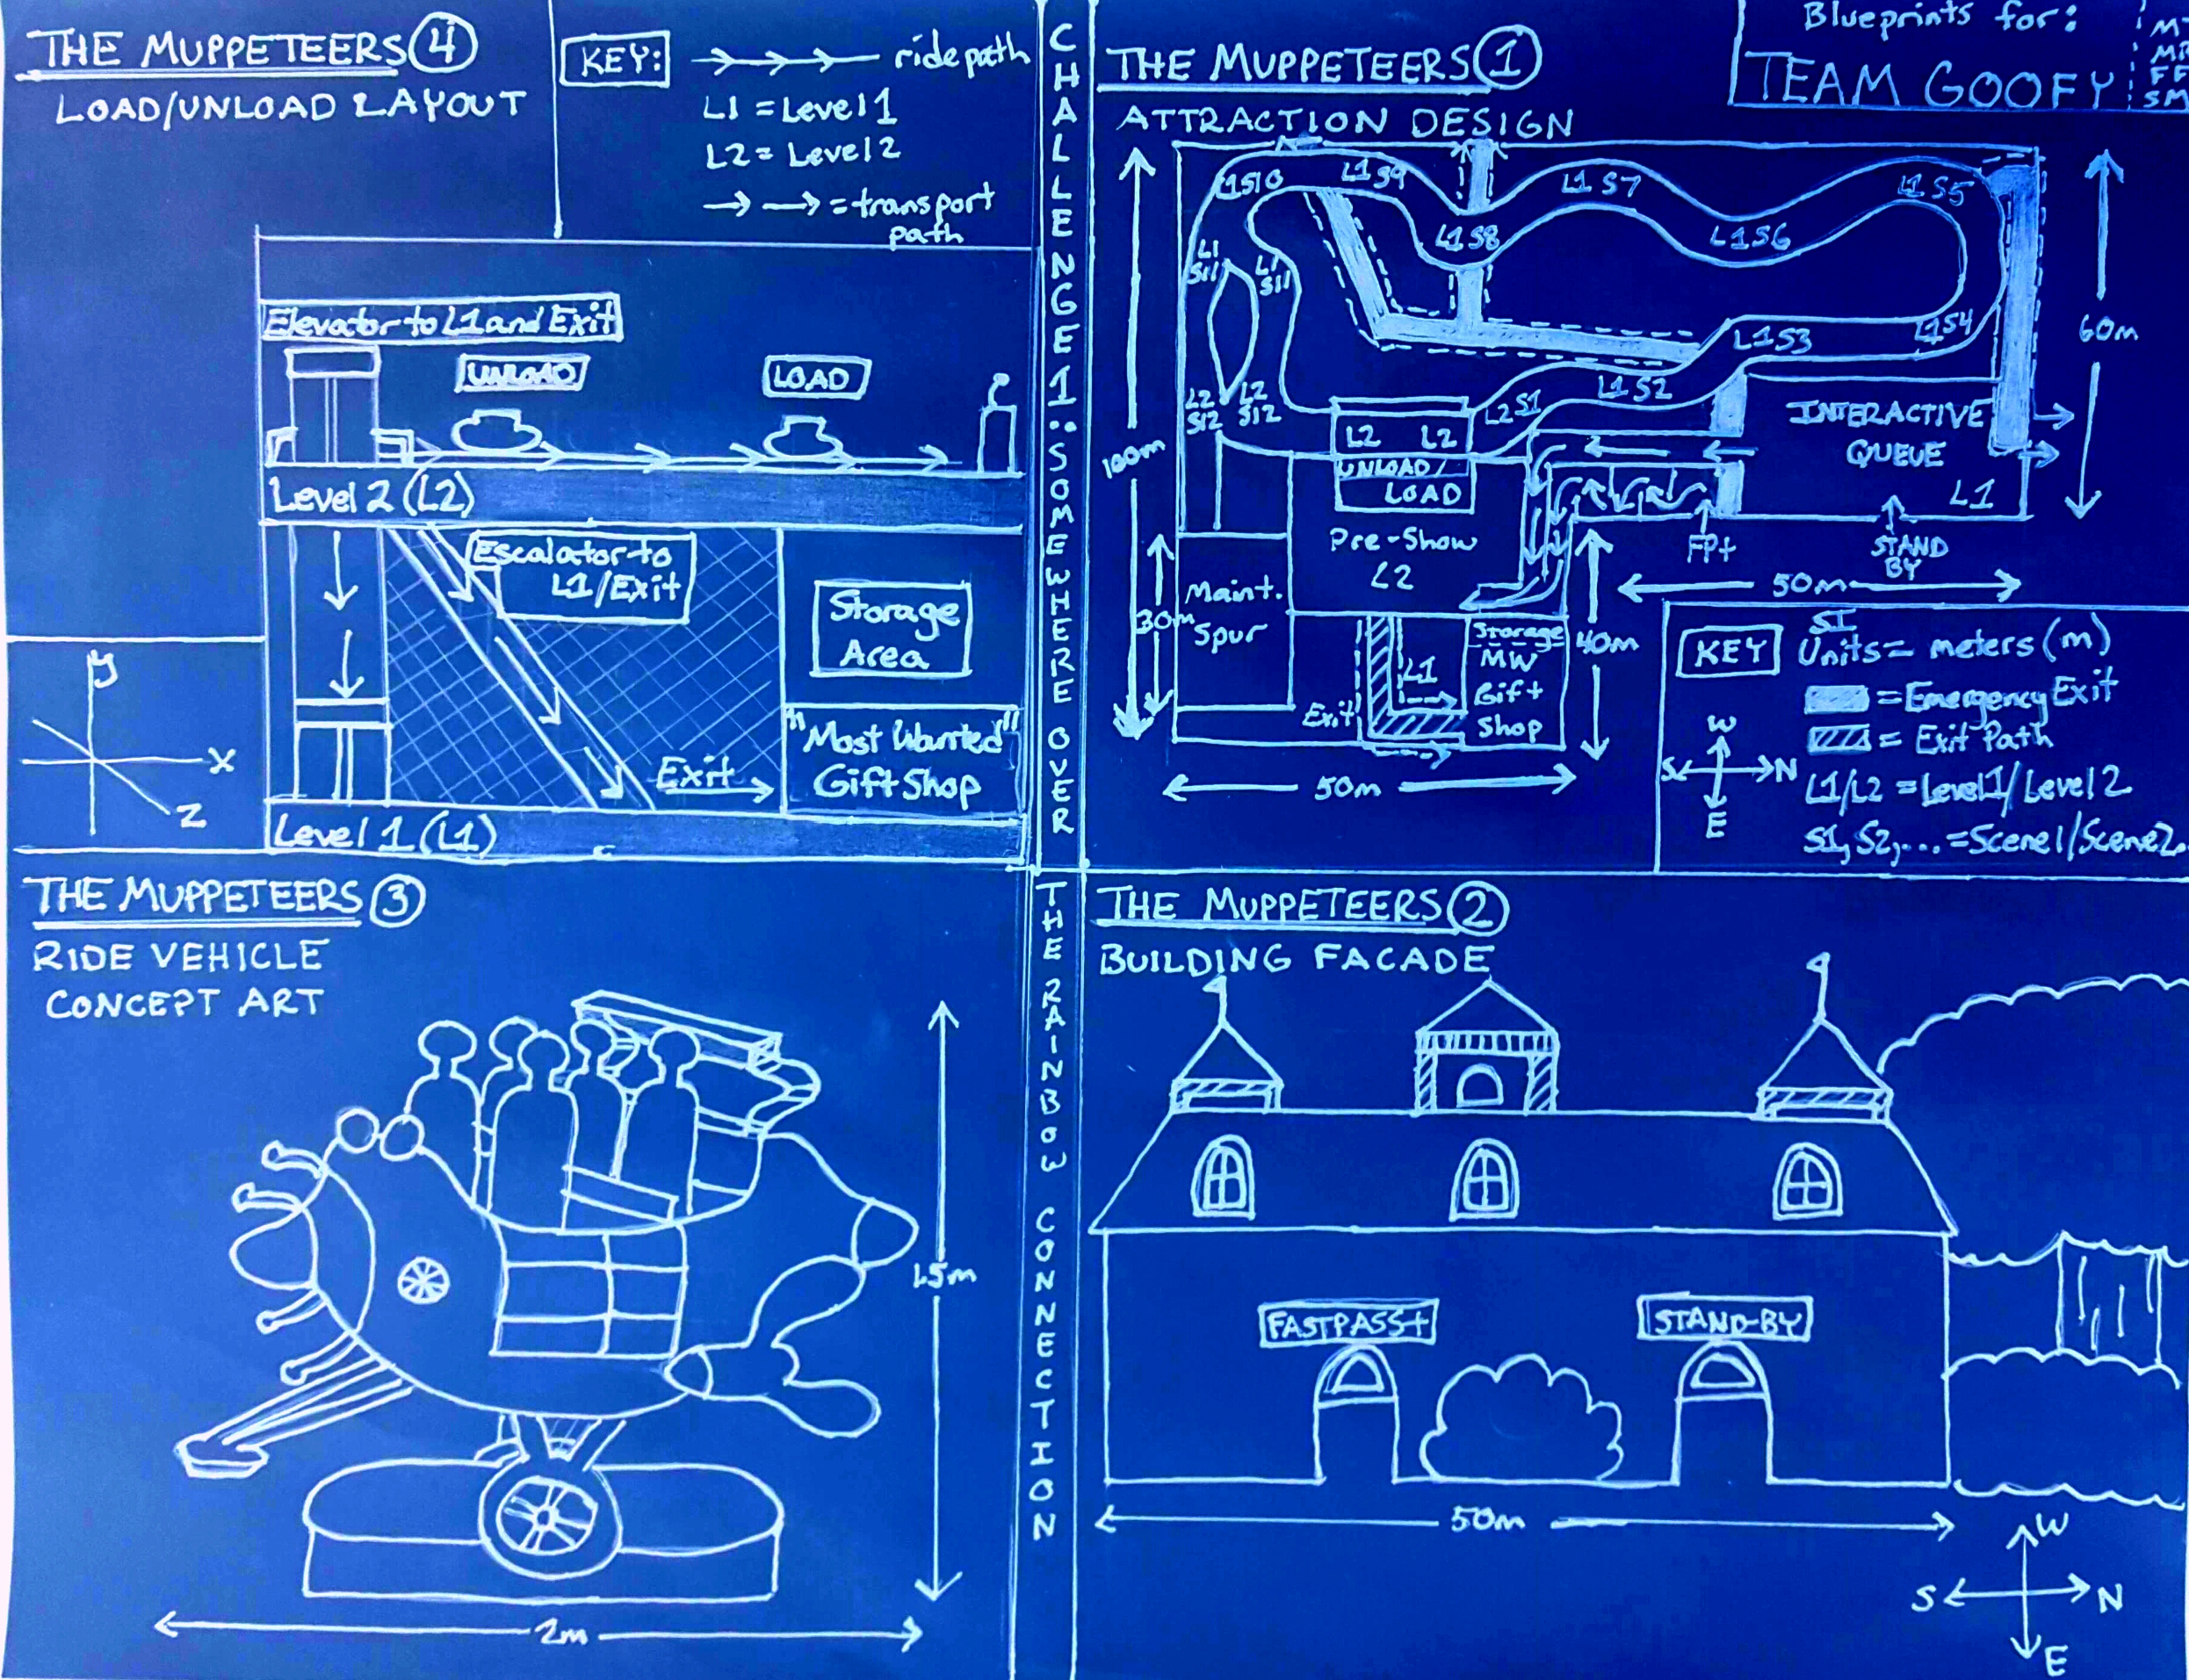 THE MUPPETEERS 4
LOAD/UNLOAD LAYOUT
KEY:
ride path
L1 = Level 1
L2 = Level 2
= transport
path
Elevator to L1 and Exit
UNLOAD
LOAD
Level 2 (L2)
Escalator to
L1/Exit
Storage
Area
"Most Wanted"
Gift Shop
Exit
Level 1 (L1)
y
x
z
CHALLENGE 1: SOMEWHERE OVER
THE RAINBOW CONNECTION
THE MUPPETEERS 1
ATTRACTION DESIGN
Blueprints for:
TEAM GOOFY
FF
SM
L1 S9
L1 S7
L1 S5
L1 S8
L1 S6
L1
S11
L1
S11
L1 S3
L1 S4
L1 S2
L2 S1
L2
S12
L2
S12
L2 L2
UNLOAD/
LOAD
INTERACTIVE
QUEUE
L1
Pre-Show
L2
FP+
STAND
BY
Maint.
Spur
Exit
L1
Storage
MW
Gift
Shop
100m
30m
60m
50m
40m
50m
KEY
SI
Units = meters (m)
= Emergency Exit
= Exit Path
L1/L2 = Level1/Level 2
S1, S2,... = Scene1/Scene2..
W
S N
E
THE MUPPETEERS 3
RIDE VEHICLE
CONCEPT ART
1.5m
2m
THE MUPPETEERS 2
BUILDING FACADE
FASTPASS+
STAND-BY
50m
W
S N
E